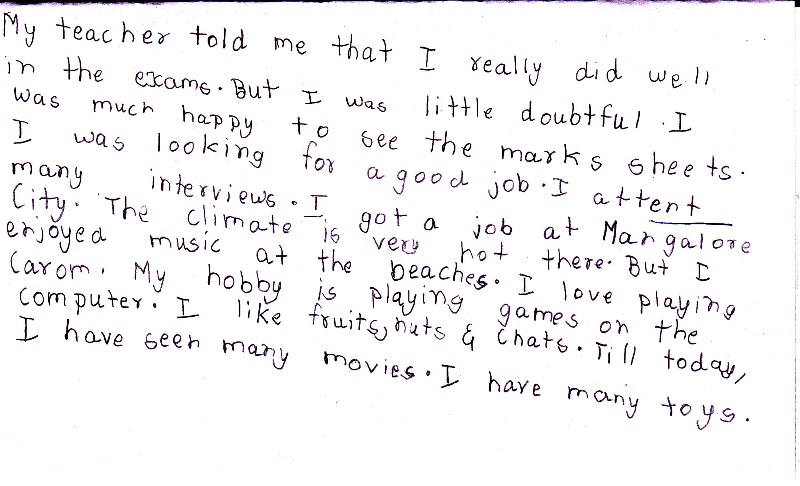 My teacher told me that I really did well
in the exams. But I was little doubtful. I
was much happy to see the marks sheets.
I was looking for a good job. I attent
many interviews. I got a job at Mangalore
City. The climate is very hot there. But I
enjoyed music at the beaches. I love playing
Carom. My hobby is playing games on the
computer. I like fruits, nuts & Chats. Till today,
I have seen many movies. I have many toys.